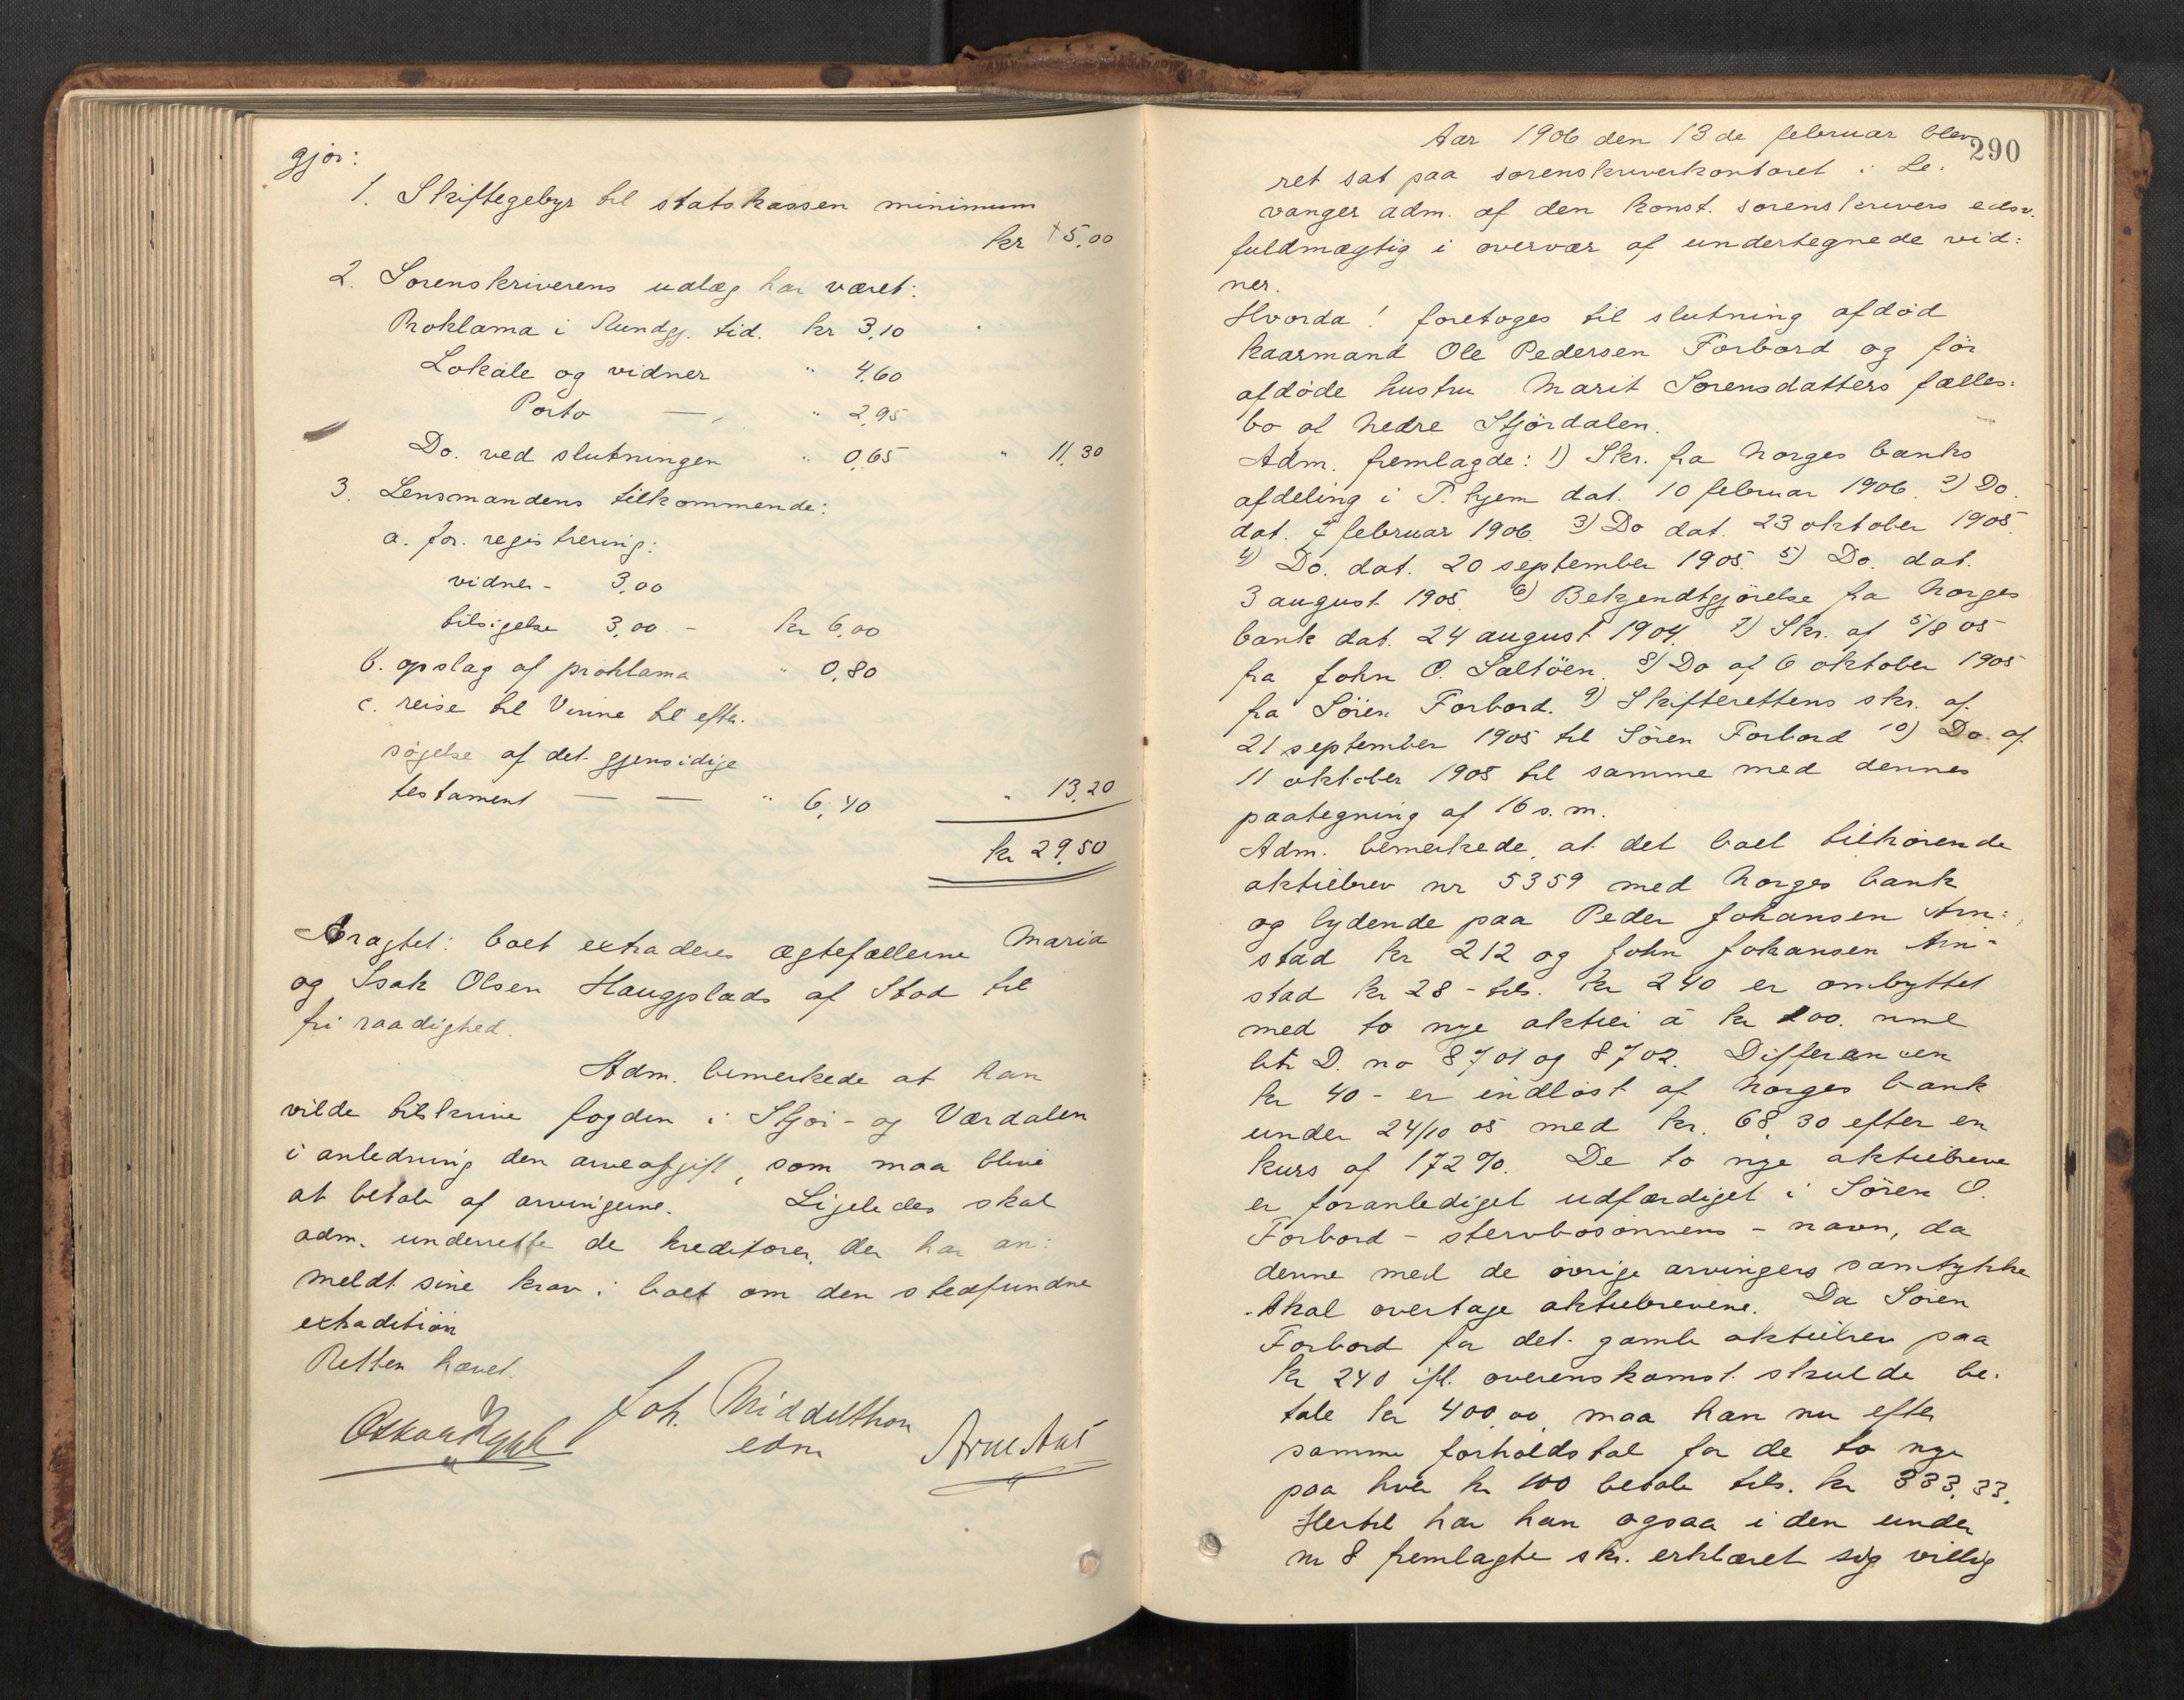 gjør:
1. Skiftegebyr til statskassen minimum
kr 5,00
2. Sorenskriverens udlæg har været:
Proklama i Kundgj. tid. kr 3,10
Lokale og vidner " 4,60
Porto — " 2,95
Do. ved slutningen " 0,65 " 11,30
3. Lensmandens tilkommende:
a. for registrering:
vidner - 3,00
tilsigelse 3,00 - kr 6,00
b. opslag af proklama " 0,80
c. reise til Vinne til efter-
søgelse af det gjensidige
testament — — " 6,40 " 13,20
kr 29,50
Aragtet: boet extraderes ægtefællerne Maria
og Isak Olsen Haugplads af Stod til
fri raadighed.
Adm. bemerkede at han
vilde tilskrive fogden i Stjør- og Værdalen
i anledning den arveafgift, som maa blive
at betale af arvingerne. Ligeledes skal
adm. underrette de kreditorer, der har an:
meldt sine krav i boet om den stedfundne
extradition
Retten hævet.
Joh. Middelthon
edsv
Arne Aus
290
Aar 1906 den 13de februar blev
ret sat paa sorenskriverkontoret i Le:
vanger adm. af den konst. sorenskrivers edsv.
fuldmægtig i overvær af undertegnede vid:
ner.
Hvorda! foretoges til slutning afdød
kaarmand Ole Pedersen Forbord og før
afdøde hustru Marit Sørensdatters fælles:
bo af Nedre Stjørdalen.
Adm. fremlagde: 1) Skr. fra Norges banks
afdeling i T.hjem dat. 10 februar 1906. 2) Do.
dat. 7 februar 1906. 3) Do dat. 23 oktober 1905.
4) Do. dat. 20 september 1905. 5) Do. dat.
3 august 1905. 6) Bekjendtgjørelse fra Norges
bank dat. 24 august 1904. 7) Skr. af 5/8 05
fra John O. Saltöen. 8) Do af 6 oktober 1905
fra Sören Forbord. 9) Skifterettens skr. af
21 september 1905 til Sören Forbord 10) Do. af
11 oktober 1905 til samme med dennes
paategning af 16 s.m.
Adm. bemerkede, at det boet tilhørende
aktiebrev nr 5359 med Norges bank
og lydende paa Peder Johansen Arn:
stad kr 212 og John Johansen Arn-
stad kr 28 - tils. kr 240 er ombyttet
med to nye aktier à kr 100. nml
litr D. no 8701 og 8702. Differancen
kr 40 - er indløst af Norges bank
under 24/10 05 med kr. 68,30 efter en
kurs af 172%. De to nye aktiebreve
er foranlediget udfærdiget i Sören O.
Forbord - stervbosønnens - navn, da
denne med de øvrige arvingers samtykke
skal overtage aktiebrevene. Da Sören
Forbord for det gamle aktiebrev paa
kr 240 ifl. overenskomst skulde be-
tale kr 400,00, maa han nu efter
samme forholdstal for de to nye
paa hver kr 100 betale tils. kr 333,33.
Hertil har han ogsaa i den under
nr 8 fremlagte skr. erklæret sig villig